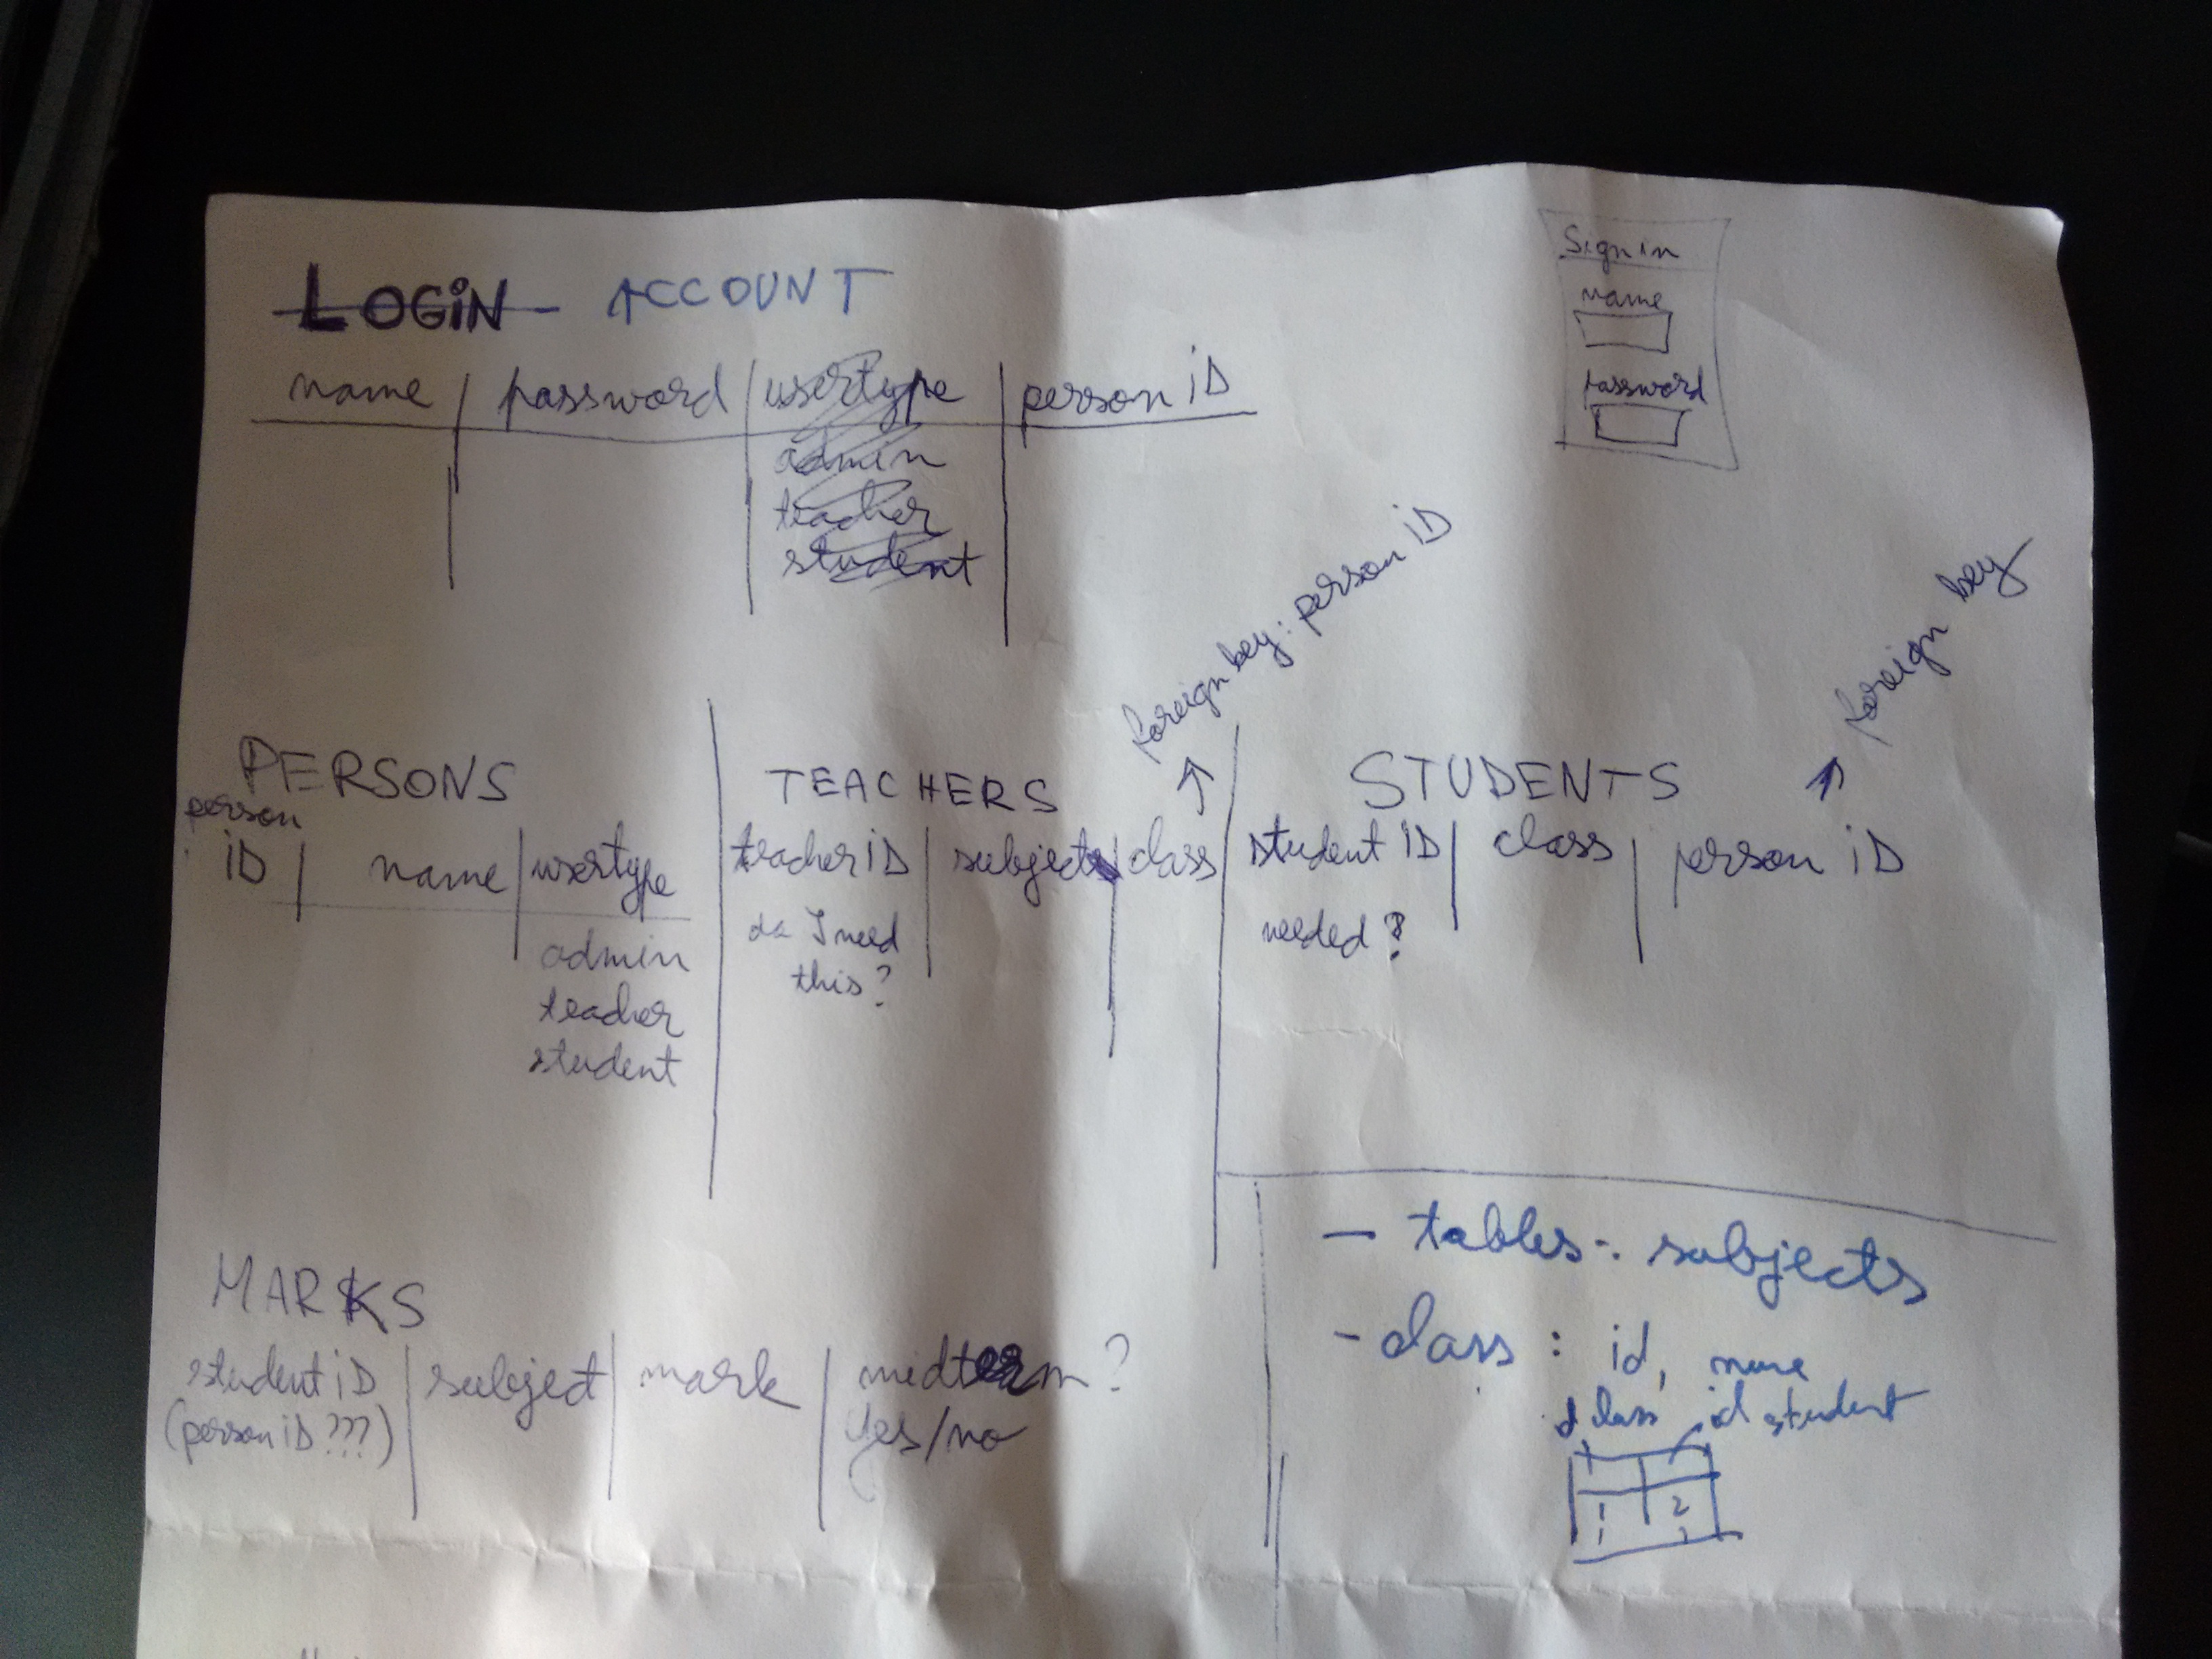 LOGIN - ACCOUNT
name | password | usertype | person iD
admin
teacher
student
Sign in
name
password
foreign key: person iD
foreign key
PERSONS
person
iD | name | usertype
admin
teacher
student
TEACHERS
teacher iD | subject | class
do I need
this?
STUDENTS
student iD | class | person iD
needed?
MARKS
student iD | subject | mark | midterm?
(person iD???)
yes/no
- tables: subjects
- class : id, name
class id student
1 2